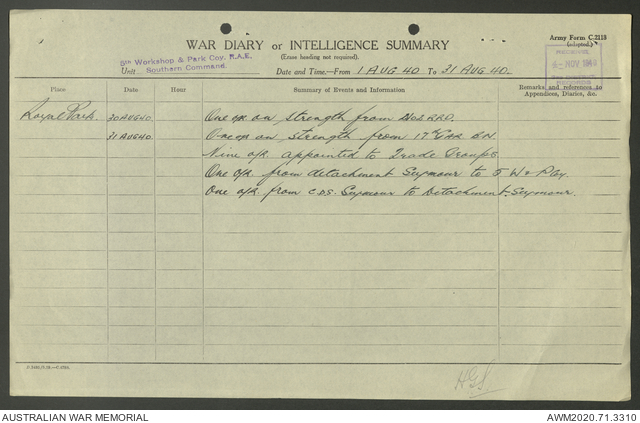 Army Form C.2118
(adapted.)
WAR DIARY or INTELLIGENCE SUMMARY
(Erase heading not required).
5th Workshop & Park Coy. R.A.E.
Unit Southern Command.
Date and Time—From 1 AUG 40 To 31 AUG 40.
NOV 1940
RECORDS
Place Date Hour Summary of Events and Information Remarks and references to Appendices, Diaries, &c.
Royal Park. 30 AUG 40 One o/r on strength from RRD.
31 AUG 40 One o/r on strength from 17th GAR. BN.
Nine o/r. appointed to Trade Groups
One o/r. from detachment Seymour to 5 W & P Coy.
One o/r. from C.D.S. Seymour to Detachment Seymour.
AUSTRALIAN WAR MEMORIAL AWM2020.71.3310